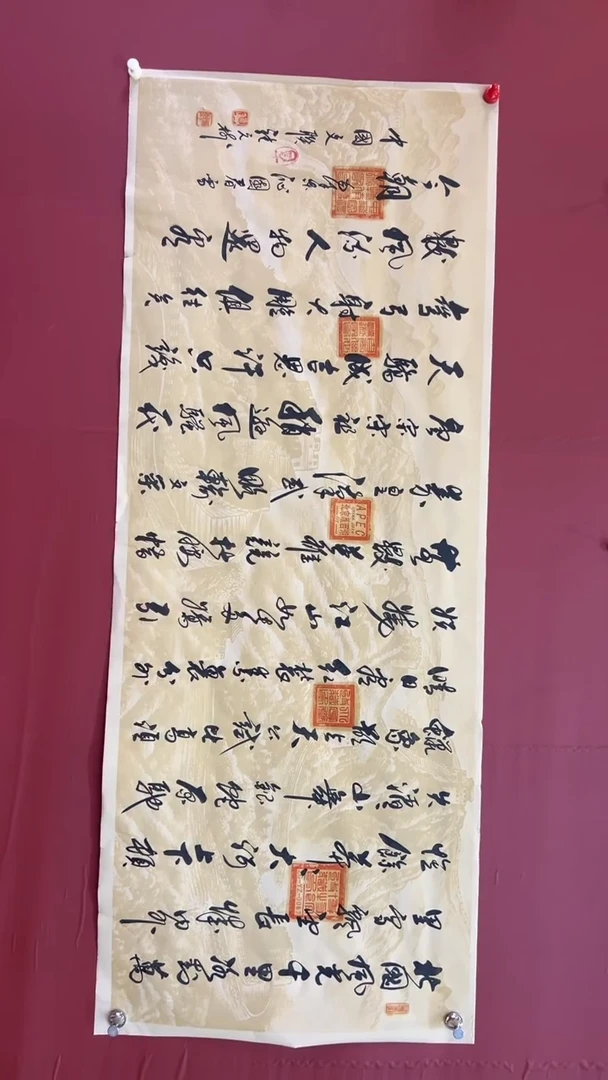 北國風光千里冰封萬
里雪飄望長城內外
惟餘莽莽大河上下頓
失滔滔山舞銀蛇原馳
蠟象欲與天公試比高須
晴日看紅裝素裹分外
妖嬈江山如此多嬌引
無數英雄競折腰惜
秦皇漢武略輸文采
唐宗宋祖稍遜風騷一代
天驕成吉思汗只識
彎弓射大雕俱往矣
數風流人物還看
今朝 毛澤東沁園春雪
中國文聯
APEC